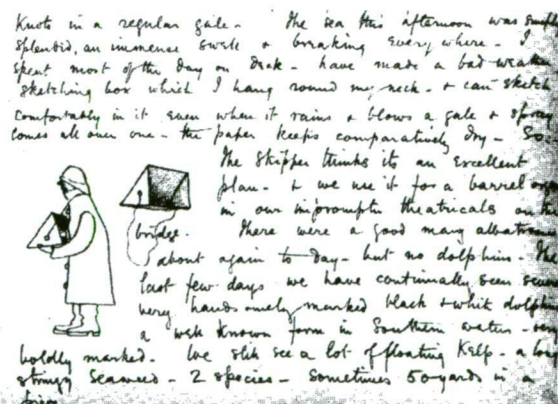 Knots in a regular gale - The sea this afternoon was simply
splendid, an immense swell & breaking everywhere - I
spent most of the day on deck - have made a bad weather
sketching box which I hang round my neck - & can sketch
comfortably in it even when it rains & blows a gale & spray
comes all over one - the paper keeps comparatively dry - So
The Skipper thinks its an excellent
plan - & we use it for a barrel organ
in our impromptu theatricals on the
bridge. There were a good many albatross
about again to day - but no dolphins - The
last few days we have continually seen
very handsomely marked black & white dolphin
a well known form in Southern waters - very
boldly marked - We still see a lot of floating Kelp - a
stringy seaweed - 2 species - sometimes 50 yards in a